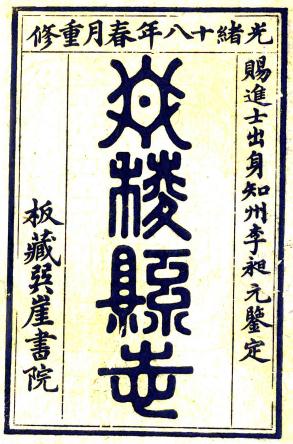 光緒十八年春月重修
賜進士出身知州李昶元鑒定
丹棱縣志
板藏巽崖書院